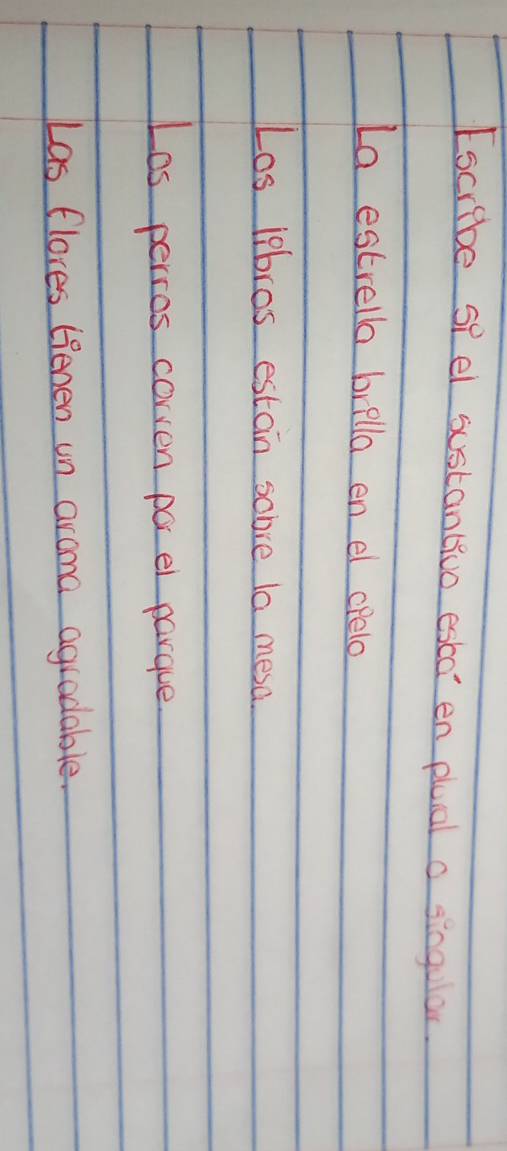 Escribe si el sustantivo está en plural o singular.
La estrella brilla en el cielo
Los libros están sobre la mesa.
Los perros corren por el parque.
Las flores tienen un aroma agradable.